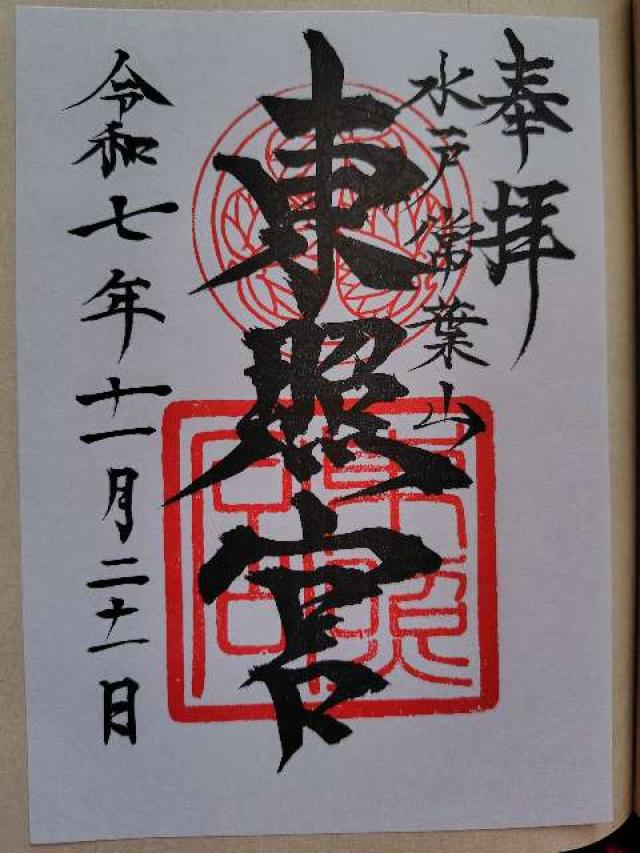 奉拝
水戸常葉山
東照宮
令和七年十一月二十一日